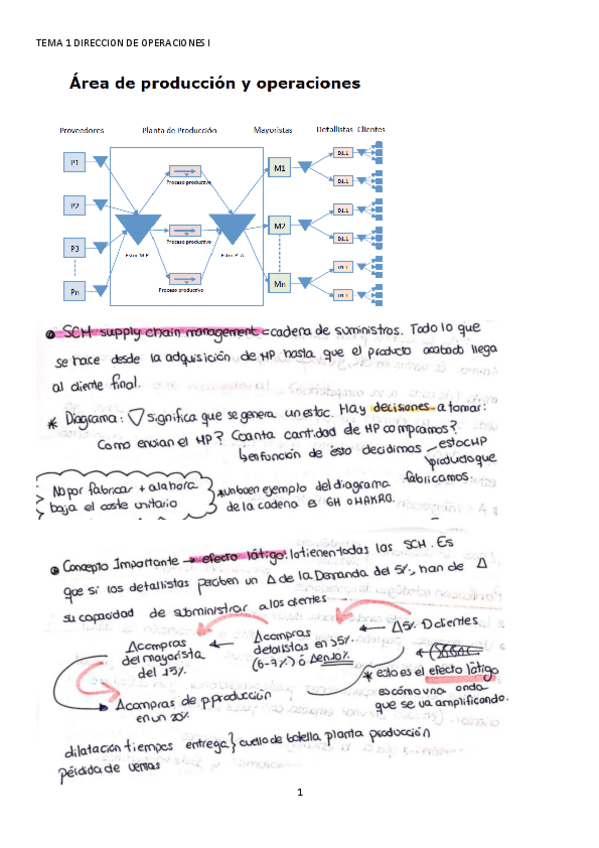 TEMA 1 DIRECCION DE OPERACIONES I
Área de producción y operaciones
Proveedores Planta de Producción Mayoristas Detallistas Clientes
P1
P2
P3
Pn
Proceso productivo
Proceso productivo
Proceso productivo
M1
M2
Mn
SCM supply chain management = cadena de suministros. Todo lo que
se hace desde la adquisición de MP hasta que el producto acabado llega
al cliente final.
* Diagrama: ▽ significa que se genera un estoc. Hay decisiones a tomar:
Como envian el MP? Cuanta cantidad de MP compramos?
en función de ésto decidimos estoc MP
producto que
fabricamos.
No por fabricar + alahora
baja el coste unitario
* un buen ejemplo del diagrama
de la cadena es GH o MAKRO.
Concepto Importante → efecto látigo: lo tienen todas las SCH. Es
que si los detallistas perciben un Δ de la Demanda del 5%, han de Δ
su capacidad de suministrar a los clientes
Δ compras
del mayorista
del 15%
← Δ compras
detallistas en >5%
(6-7%) ó Δ en 10%
← Δ5% D clientes
* esto es el efecto látigo
es cómo una onda
que se va amplificando.
Δ compras de p producción
en un 20%
dilatación tiempos entrega } cuello de botella planta producción
pérdida de ventas
1